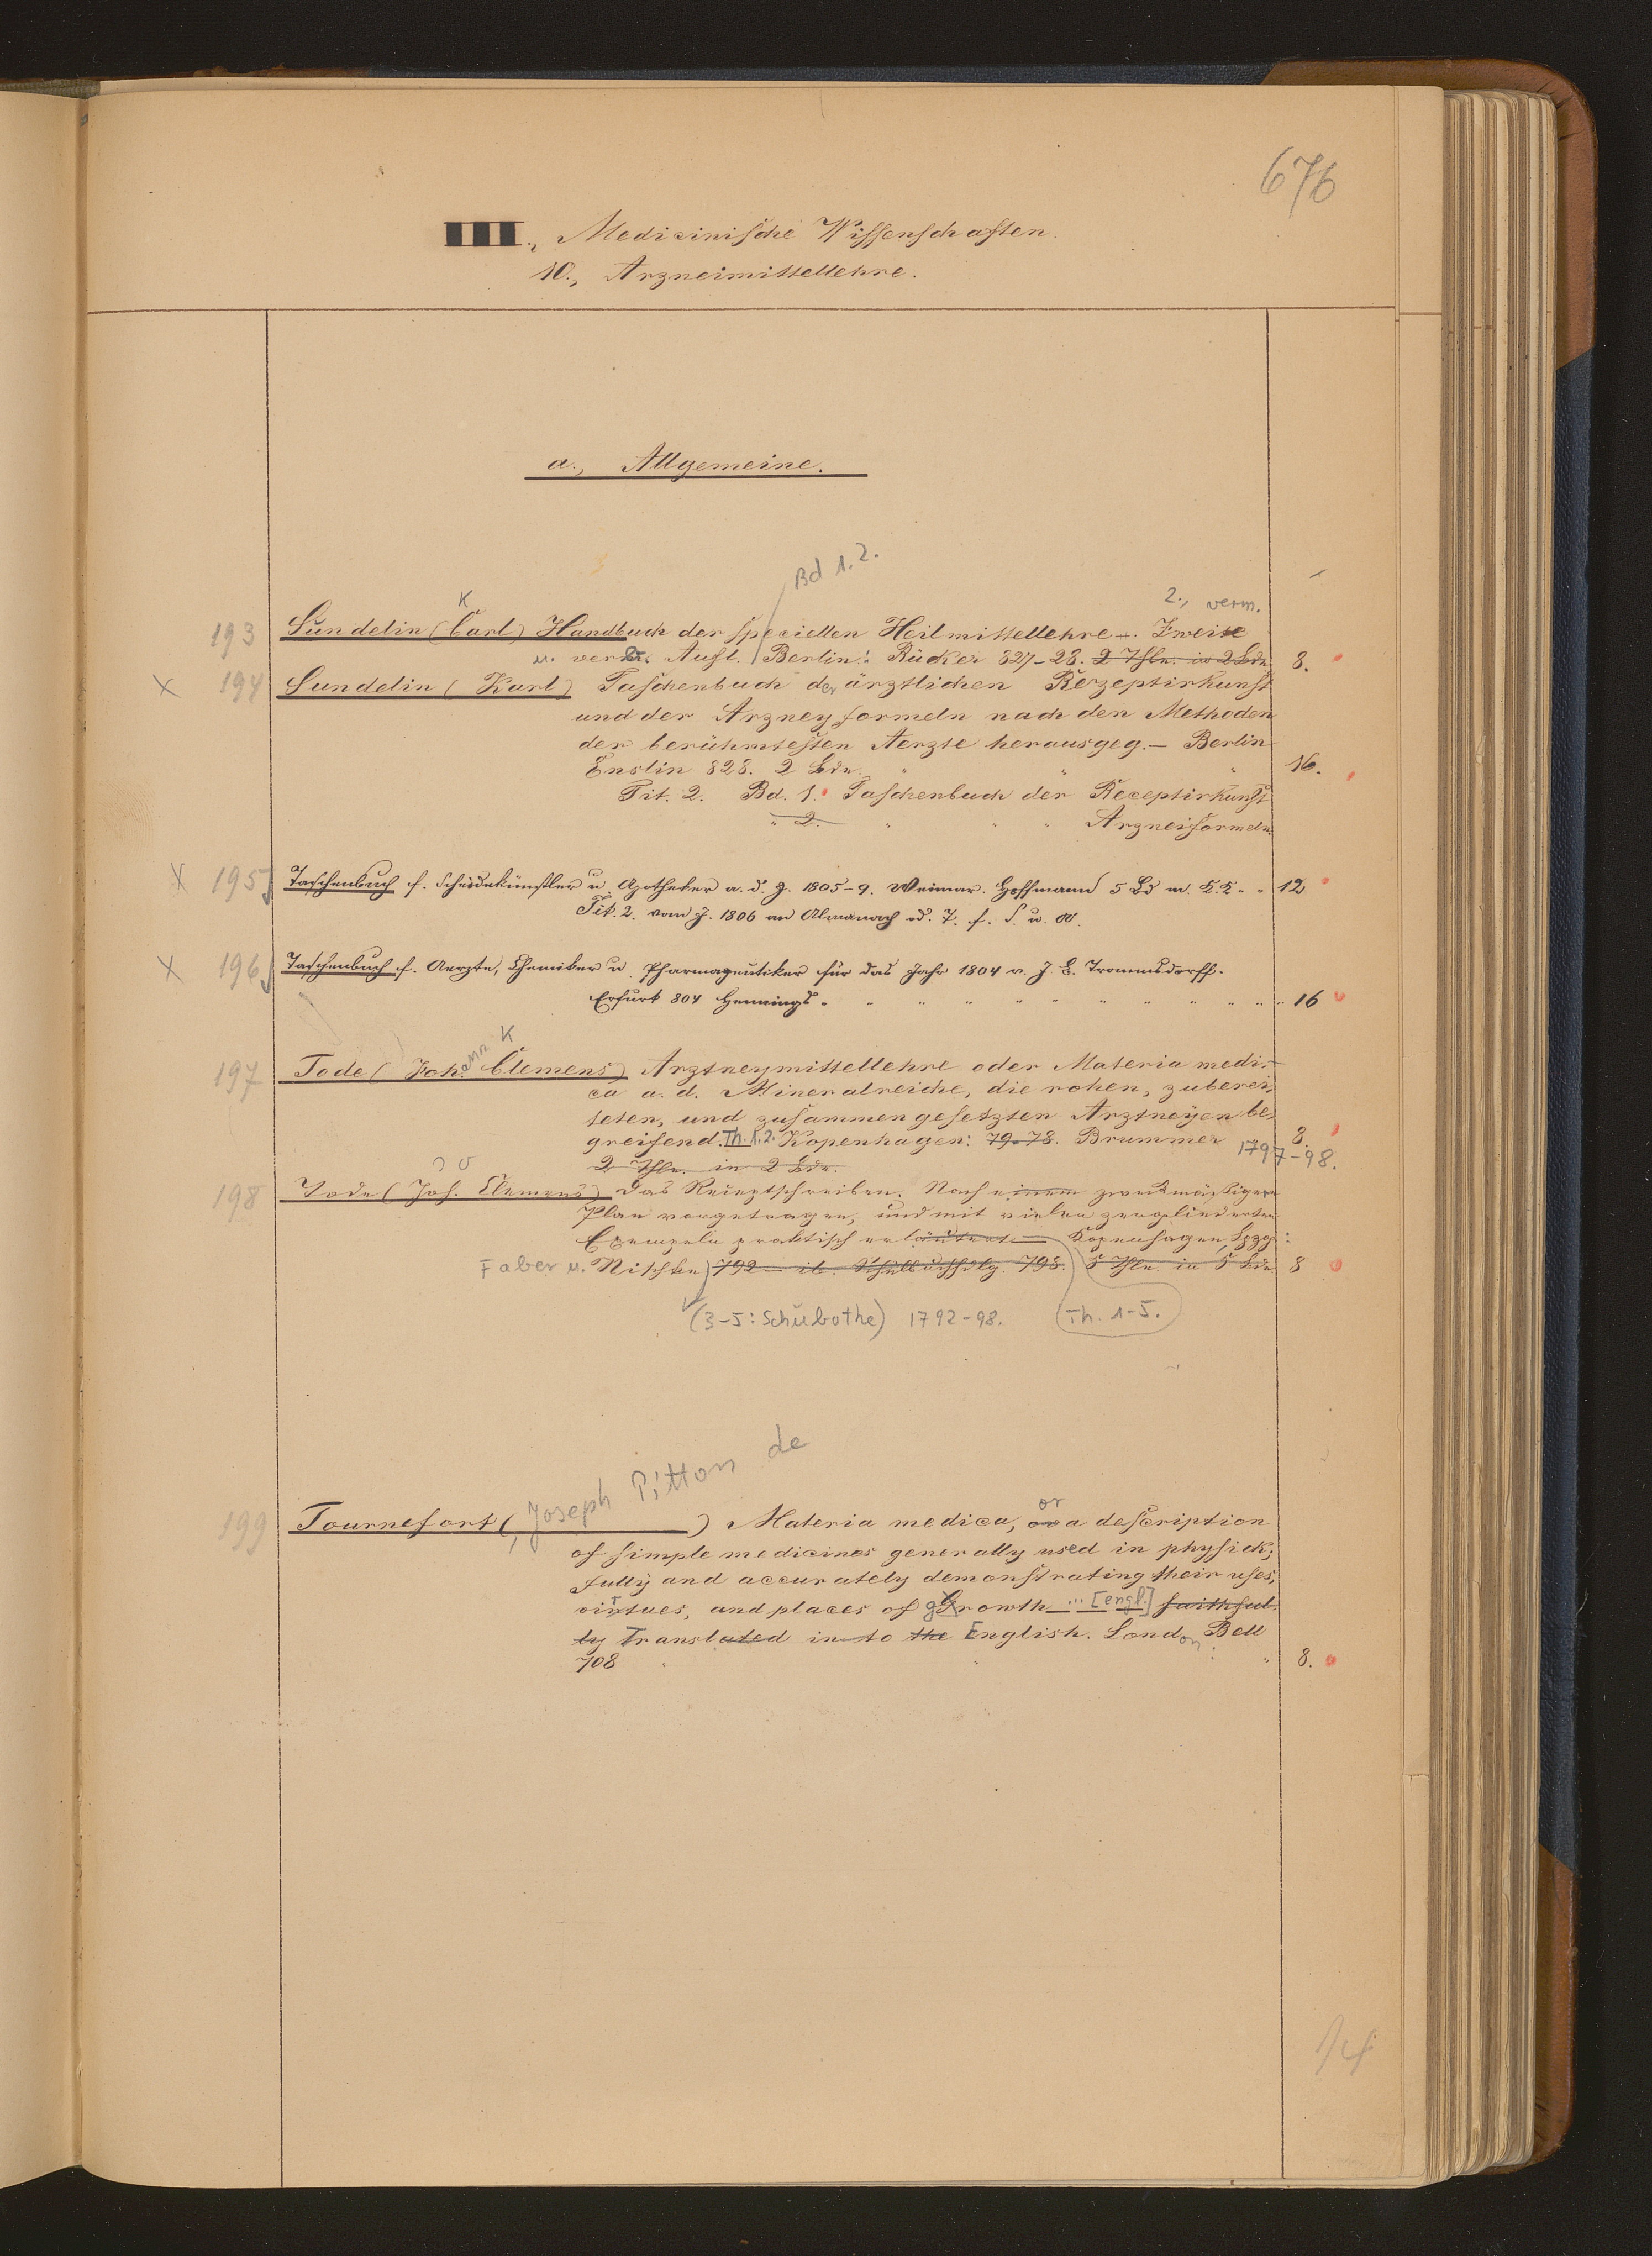 676
III., Medicinische Wissenschaften
10., Arzneimittellehre.
a., Allgemeine.
Bd 1.2.
K 2., verm.
193 Sundelin (Carl) Handbuch der speciellen Heilmittellehre. Zweite
u. verm. Aufl. Berlin: Rücker 827-28. 2 Thle. in 2 Bde. 8.
X 194 Sundelin (Karl) Taschenbuch der ärztlichen Rezeptirkunst
und der Arzneyformeln nach den Methoden
der berühmtesten Aerzte herausgeg. — Berlin
Enslin 828. 2 Bde. " " " 16.
Tit. 2. Bd. 1. Taschenbuch der Receptirkunst
" 2. " " " Arzneiformeln
X 195 Taschenbuch f. Scheidekünstler u. Apotheker a. d. J. 1805-9. Weimar. Hoffmann 5 Bd m. K.K. " " 12
Tit. 2. vom J. 1806 an Almanach od. T. f. S. u. A.
X 196 Taschenbuch f. Aerzte, Chemiker u. Pharmazeutiker für das Jahr 1804 v. J. B. Trommsdorff.
Erfurt 804 Hennings. " " " " " " " " " " 16
ann K
197 Tode (Joh. Clemens) Arztneymittellehre oder Materia medi-
ca a. d. Mineralreiche, die rohen, zuberei-
teten, und zusammengesetzten Arztneyen be-
greifend. Th. 1.2. Kopenhagen: 79-78. Brummer 8.
1797-98.
2 Thle. in 2 Bde.
198 Tode (Joh. Clemens) Das Receptschreiben. Nach einem zweckmäßigen
Plan vorgetragen, und mit vielen zergliederten
Exempeln praktisch erläutert — Kopenhagen, Lpzg:
Faber u. Nitschke 792 — ib. Schubothe 798. 5 Thle. in 5 Bde. 8
(3-5: Schubothe) 1792-98. Th. 1-5.
Joseph Pitton de
or
199 Tournefort ( ) Materia medica, or a description
of simple medicines generally used in physick;
fully and accurately demonstrating their uses,
virtues, and places of growth ... [engl.] faithful-
ly Translated in to the English. London: Bell
708 " " " 8.
14